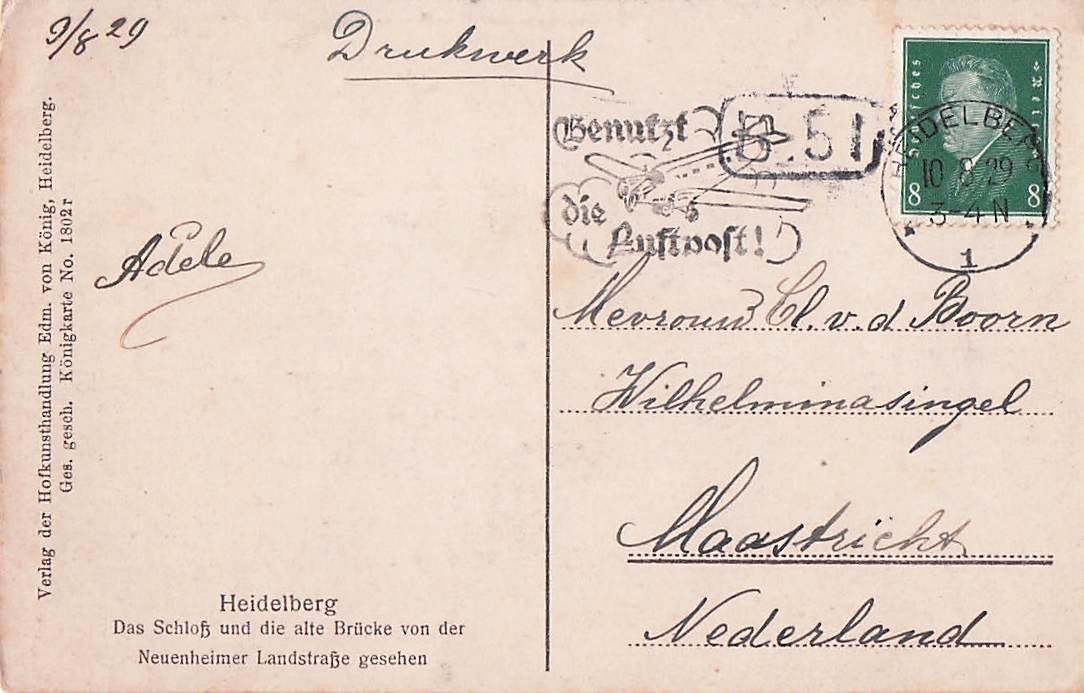 9/8 29
Drukwerk
Benutzt
die
Luftpost!
B.51
Deutsches Reich
8 8
HEIDELBERG
10.8.29
3-4 N
1
Adele
Mevrouw Cl. v. d Boorn
Wilhelminasingel
Maastricht
Nederland
Verlag der Hofkunsthandlung Edm. von König, Heidelberg.
Ges. gesch. Königkarte No. 1802r
Heidelberg
Das Schloß und die alte Brücke von der
Neuenheimer Landstraße gesehen